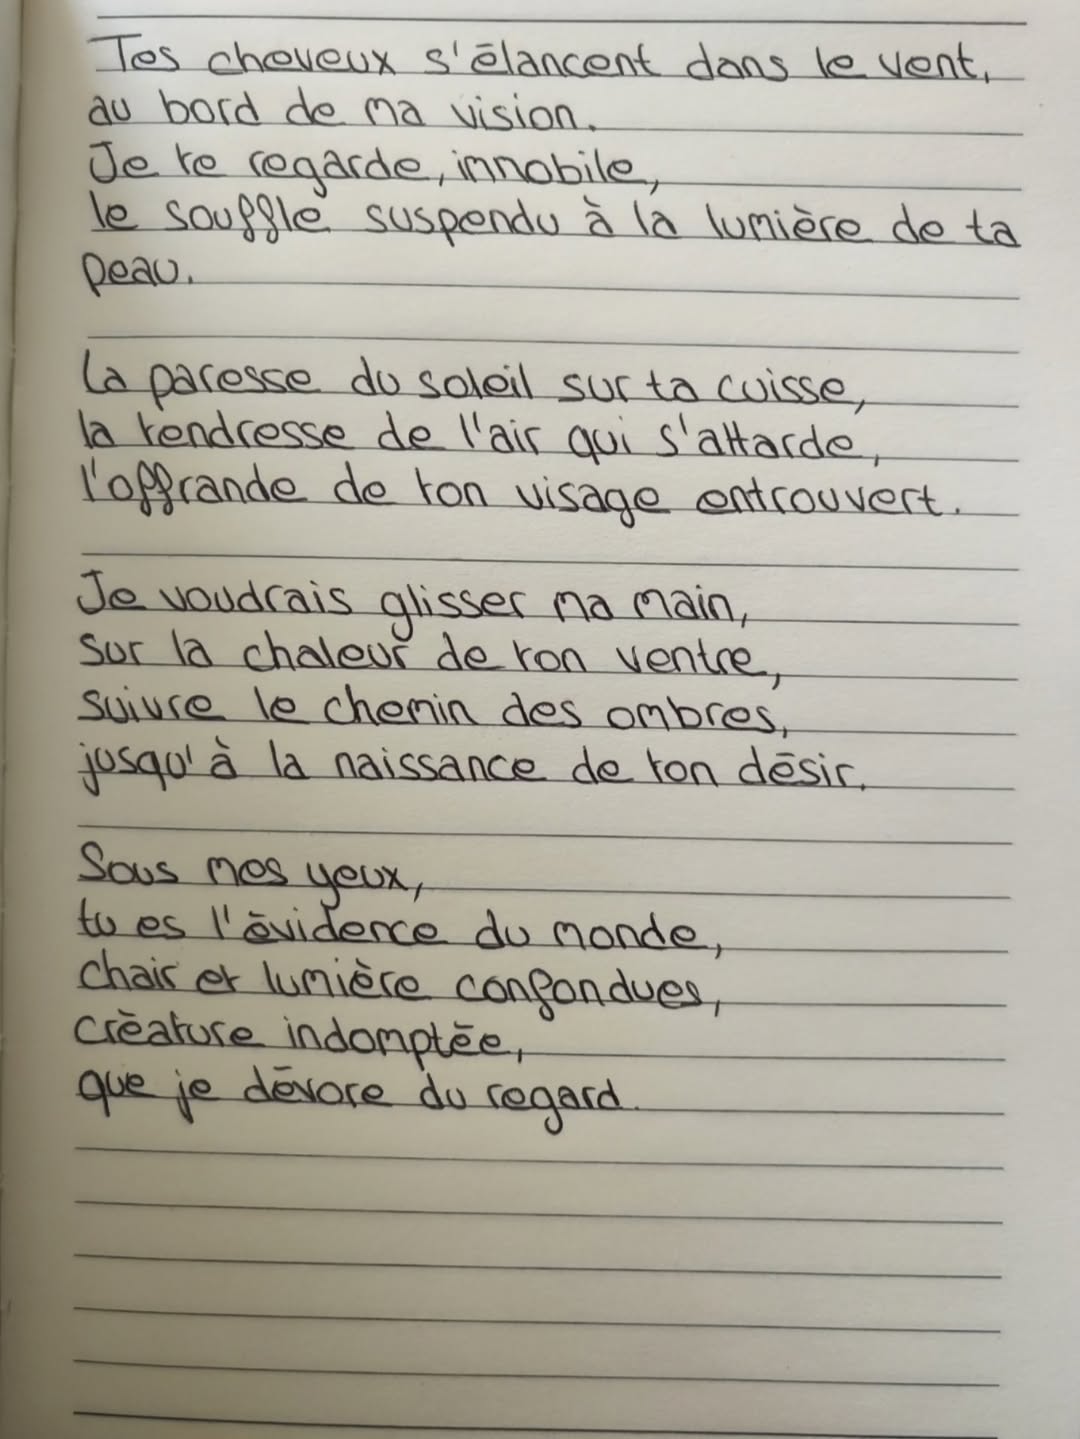 Tes cheveux s'élancent dans le vent,
au bord de ma vision.
Je te regarde, immobile,
le souffle suspendu à la lumière de ta
peau.
La paresse du soleil sur ta cuisse,
la tendresse de l'air qui s'attarde,
l'offrande de ton visage entrouvert.
Je voudrais glisser ma main,
sur la chaleur de ton ventre,
suivre le chemin des ombres,
jusqu'à la naissance de ton désir.
Sous mes yeux,
tu es l'évidence du monde,
chair et lumière confondues,
créature indomptée,
que je dévore du regard.